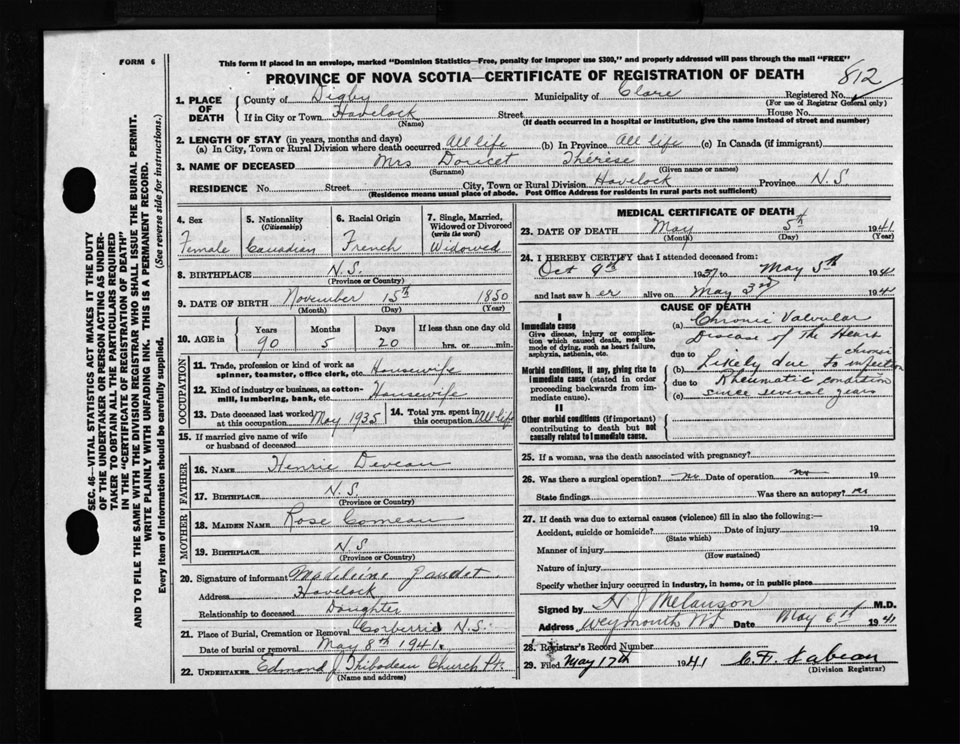 FORM 6
This form if placed in an envelope, marked "Dominion Statistics—Free, penalty for improper use $300," and properly addressed will pass through the mail "FREE"
PROVINCE OF NOVA SCOTIA—CERTIFICATE OF REGISTRATION OF DEATH
812
1. PLACE OF DEATH
County of Digby Municipality of Clare Registered No.
(For use of Registrar General only)
If in City or Town Havelock Street House No.
(Name) (If death occurred in a hospital or institution, give the name instead of street and number)
2. LENGTH OF STAY (in years, months and days)
(a) In City, Town or Rural Division where death occurred All life (b) In Province All life (c) In Canada (if immigrant)
3. NAME OF DECEASED Mrs Doucet Thérèse
(Surname) (Given name or names)
RESIDENCE No. Street City, Town or Rural Division Havelock Province N.S
(Residence means usual place of abode. Post Office Address for residents in rural parts not sufficient)
4. Sex Female
5. Nationality (Citizenship) Canadien
6. Racial Origin French
7. Single, Married, Widowed or Divorced (write the word) Widowed
8. BIRTHPLACE N.S.
(Province or Country)
9. DATE OF BIRTH November 15th 1850
(Month) (Day) (Year)
10. AGE in Years Months Days If less than one day old
90 5 20 hrs. or min.
OCCUPATION
11. Trade, profession or kind of work as spinner, teamster, office clerk, etc. Housewife
12. Kind of industry or business, as cotton-mill, lumbering, bank, etc. Housewife
13. Date deceased last worked at this occupation May 1935
14. Total yrs. spent in this occupation All life
15. If married give name of wife or husband of deceased
FATHER
16. NAME Henrie Deveau
17. BIRTHPLACE N.S.
(Province or Country)
MOTHER
18. MAIDEN NAME Rose Comeau
19. BIRTHPLACE N S
(Province or Country)
20. Signature of informant Madeleine Gaudet
Address Havelock
Relationship to deceased Daughter
21. Place of Burial, Cremation or Removal Corberrie N.S.
Date of burial or removal May 8th 1941
22. UNDERTAKER Edmond J Thibodeau Church Pt.
(Name and address)
MEDICAL CERTIFICATE OF DEATH
23. DATE OF DEATH May 5th 1941
(Month) (Day) (Year)
24. I HEREBY CERTIFY that I attended deceased from:
Oct 9th 1937 to May 5th 1941
and last saw her alive on May 3rd 1941
CAUSE OF DEATH
I
Immediate cause
Give disease, injury or complication which caused death, not the mode of dying, such as heart failure, asphyxia, asthenia, etc.
Morbid conditions, if any, giving rise to immediate cause (stated in order proceeding backwards from immediate cause).
II
Other morbid conditions (if important) contributing to death but not causally related to immediate cause.
(a) Chronic Valvular
Disease of the Heart
due to chronic
(b) Likely due to infection
due to Rheumatic condition
(c) since several years
25. If a woman, was the death associated with pregnancy?
26. Was there a surgical operation? no Date of operation no 19
State findings Was there an autopsy?
27. If death was due to external causes (violence) fill in also the following:—
Accident, suicide or homicide? Date of injury 19
(State which)
Manner of injury
(How sustained)
Nature of injury
Specify whether injury occurred in industry, in home, or in public place
Signed by N J Melanson M.D.
Address Weymouth NS Date May 6th 1941
28. Registrar's Record Number
29. Filed May 17th 1941 C. F. Sabean
(Division Registrar)
SEC. 46—VITAL STATISTICS ACT MAKES IT THE DUTY
OF THE UNDERTAKER OR PERSON ACTING AS UNDER-
TAKER TO OBTAIN ALL THE PARTICULARS REQUIRED
IN THE "CERTIFICATE OF REGISTRATION OF DEATH"
AND TO FILE THE SAME WITH THE DIVISION REGISTRAR WHO SHALL ISSUE THE BURIAL PERMIT.
WRITE PLAINLY WITH UNFADING INK. THIS IS A PERMANENT RECORD.
Every item of Information should be carefully supplied. (See reverse side for instructions.)